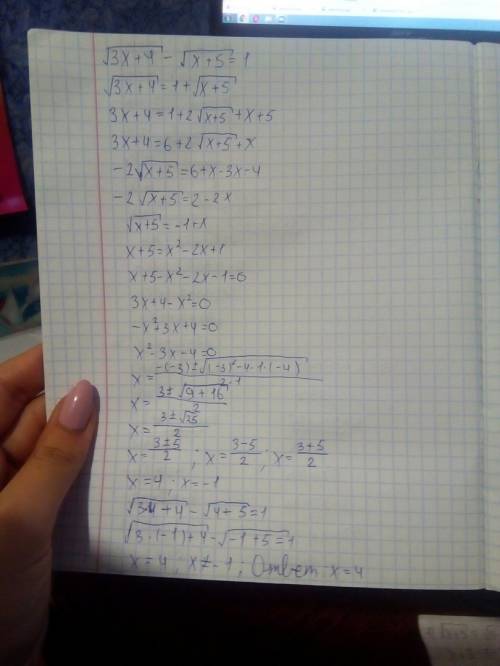 √3x+4 - √x+5 = 1
√3x+4 = 1+√x+5
3x+4=1+2√x+5+x+5
3x+4=6+2√x+5+x
-2√x+5=6+x-3x-4
-2√x+5=2-2x
√x+5=-1+x
x+5=x²-2x+1
x+5-x²-2x-1=0
3x+4-x²=0
-x²+3x+4=0
x²-3x-4=0
x=-(-3)±√(-3)²-4·1·(-4)/2·1
x=3±√9+16/2
x=3±√25/2
x=3±5/2; x=3-5/2; x=3+5/2
x=4; x=-1
√3·4+4-√4+5=1
√3·(-1)+4-√-1+5=1
x=4; x≠-1; Ответ: x=4